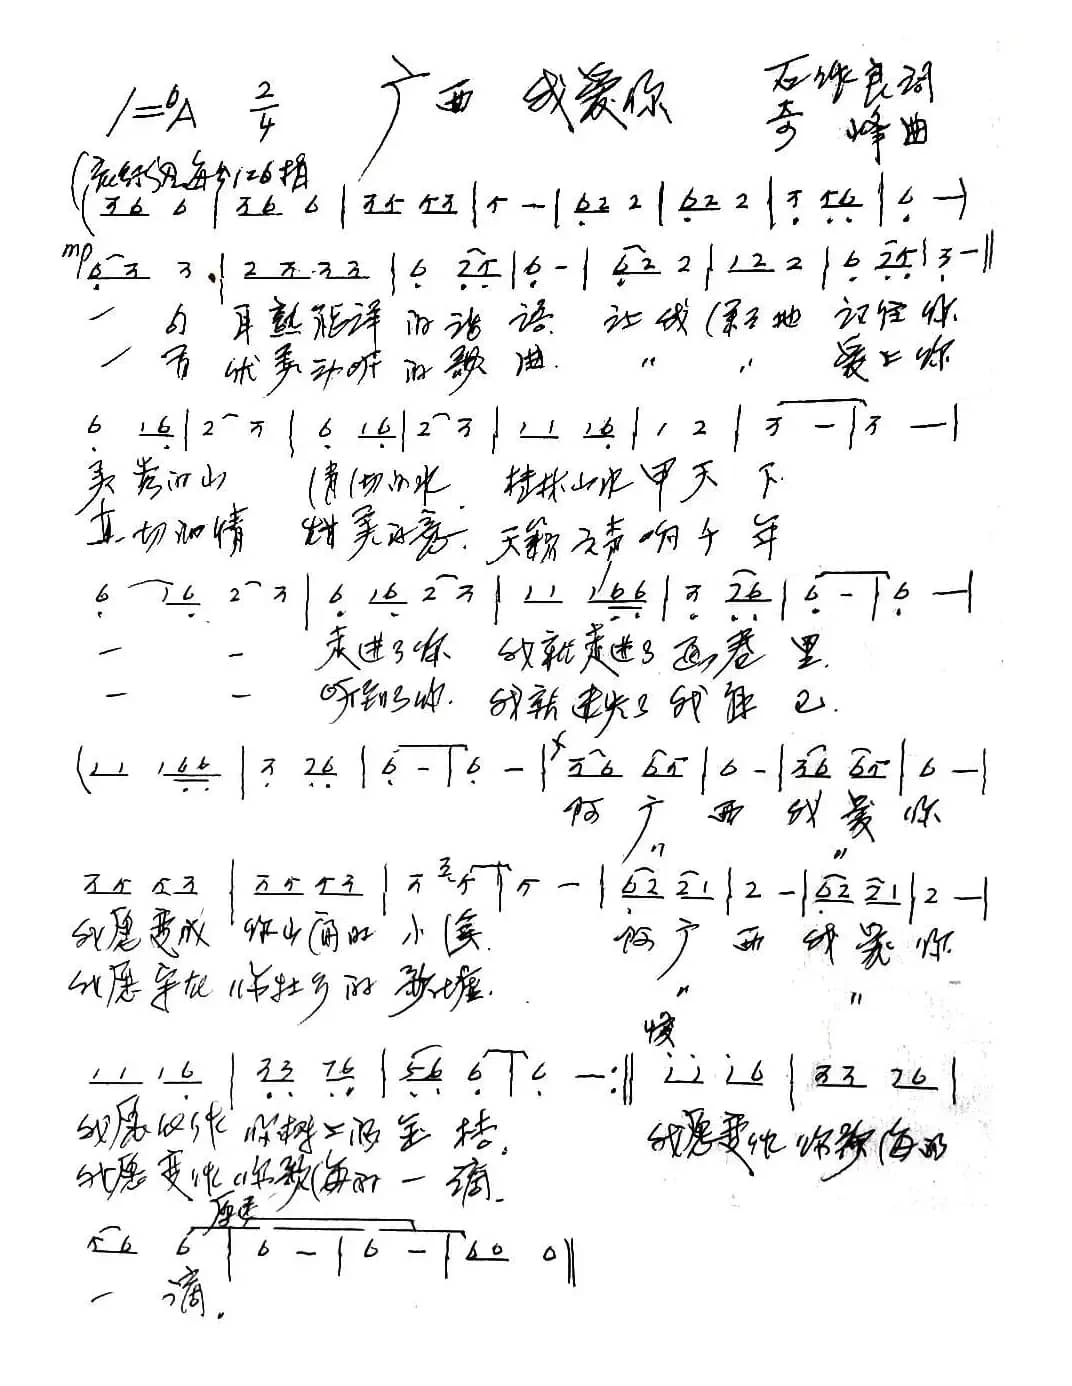 1=♭A 2/4 广西 我爱你 石作良词
奇峰曲
每分126拍
(3 6 6 | 3 6 6 | 3 5 5 3 | 5 - | 6 2 2 | 6 2 2 | 3 5 6 | 6 -)
mp 6 3 3 . | 2 3 3 3 | 6 2 5 | 6 - | 6 2 2 | 1 2 2 | 6 2 5 | 3 - ‖
一句耳熟能详的话语. 让我 地记住你
一首优美动听的歌曲. " " 爱上你
6 1 6 | 2 3 | 6 1 6 | 2 3 | 1 1 1 6 | 1 2 | 3 - | 3 - |
美 的山 的水 桂林山水甲天下.
真切的情 甜美的 . 天籁之声响千年
6 1 6 2 3 | 6 1 6 2 3 | 1 1 1 6 6 | 3 2 6 | 6 - | 6 - |
一 一 走进了你 我就走进了画卷里.
一 一 听到了你. 我就迷失了我自己.
(1 1 1 6 6 | 3 2 6 | 6 - | 6 - | 3 6 6 5 | 6 - | 3 6 6 5 | 6 - |
阿 广西 我爱你
" "
3 5 5 3 | 3 5 5 3 | 3 5 | 5 - | 6 2 2 1 | 2 - | 6 2 2 1 | 2 - |
我愿变成 你山 的小溪. 阿广西 我爱你
我愿 在你壮乡的歌墟. " "
慢
1 1 1 6 | 3 3 7 6 | 5 6 6 | 6 - :‖ i i i 6 | 3 3 7 6 |
我愿 作 你树上的金桂. 我愿变作你歌海的
我愿变作你歌海的一滴.
原速
5 6 6 | 6 - | 6 - | 6 0 0 ‖
一 滴.